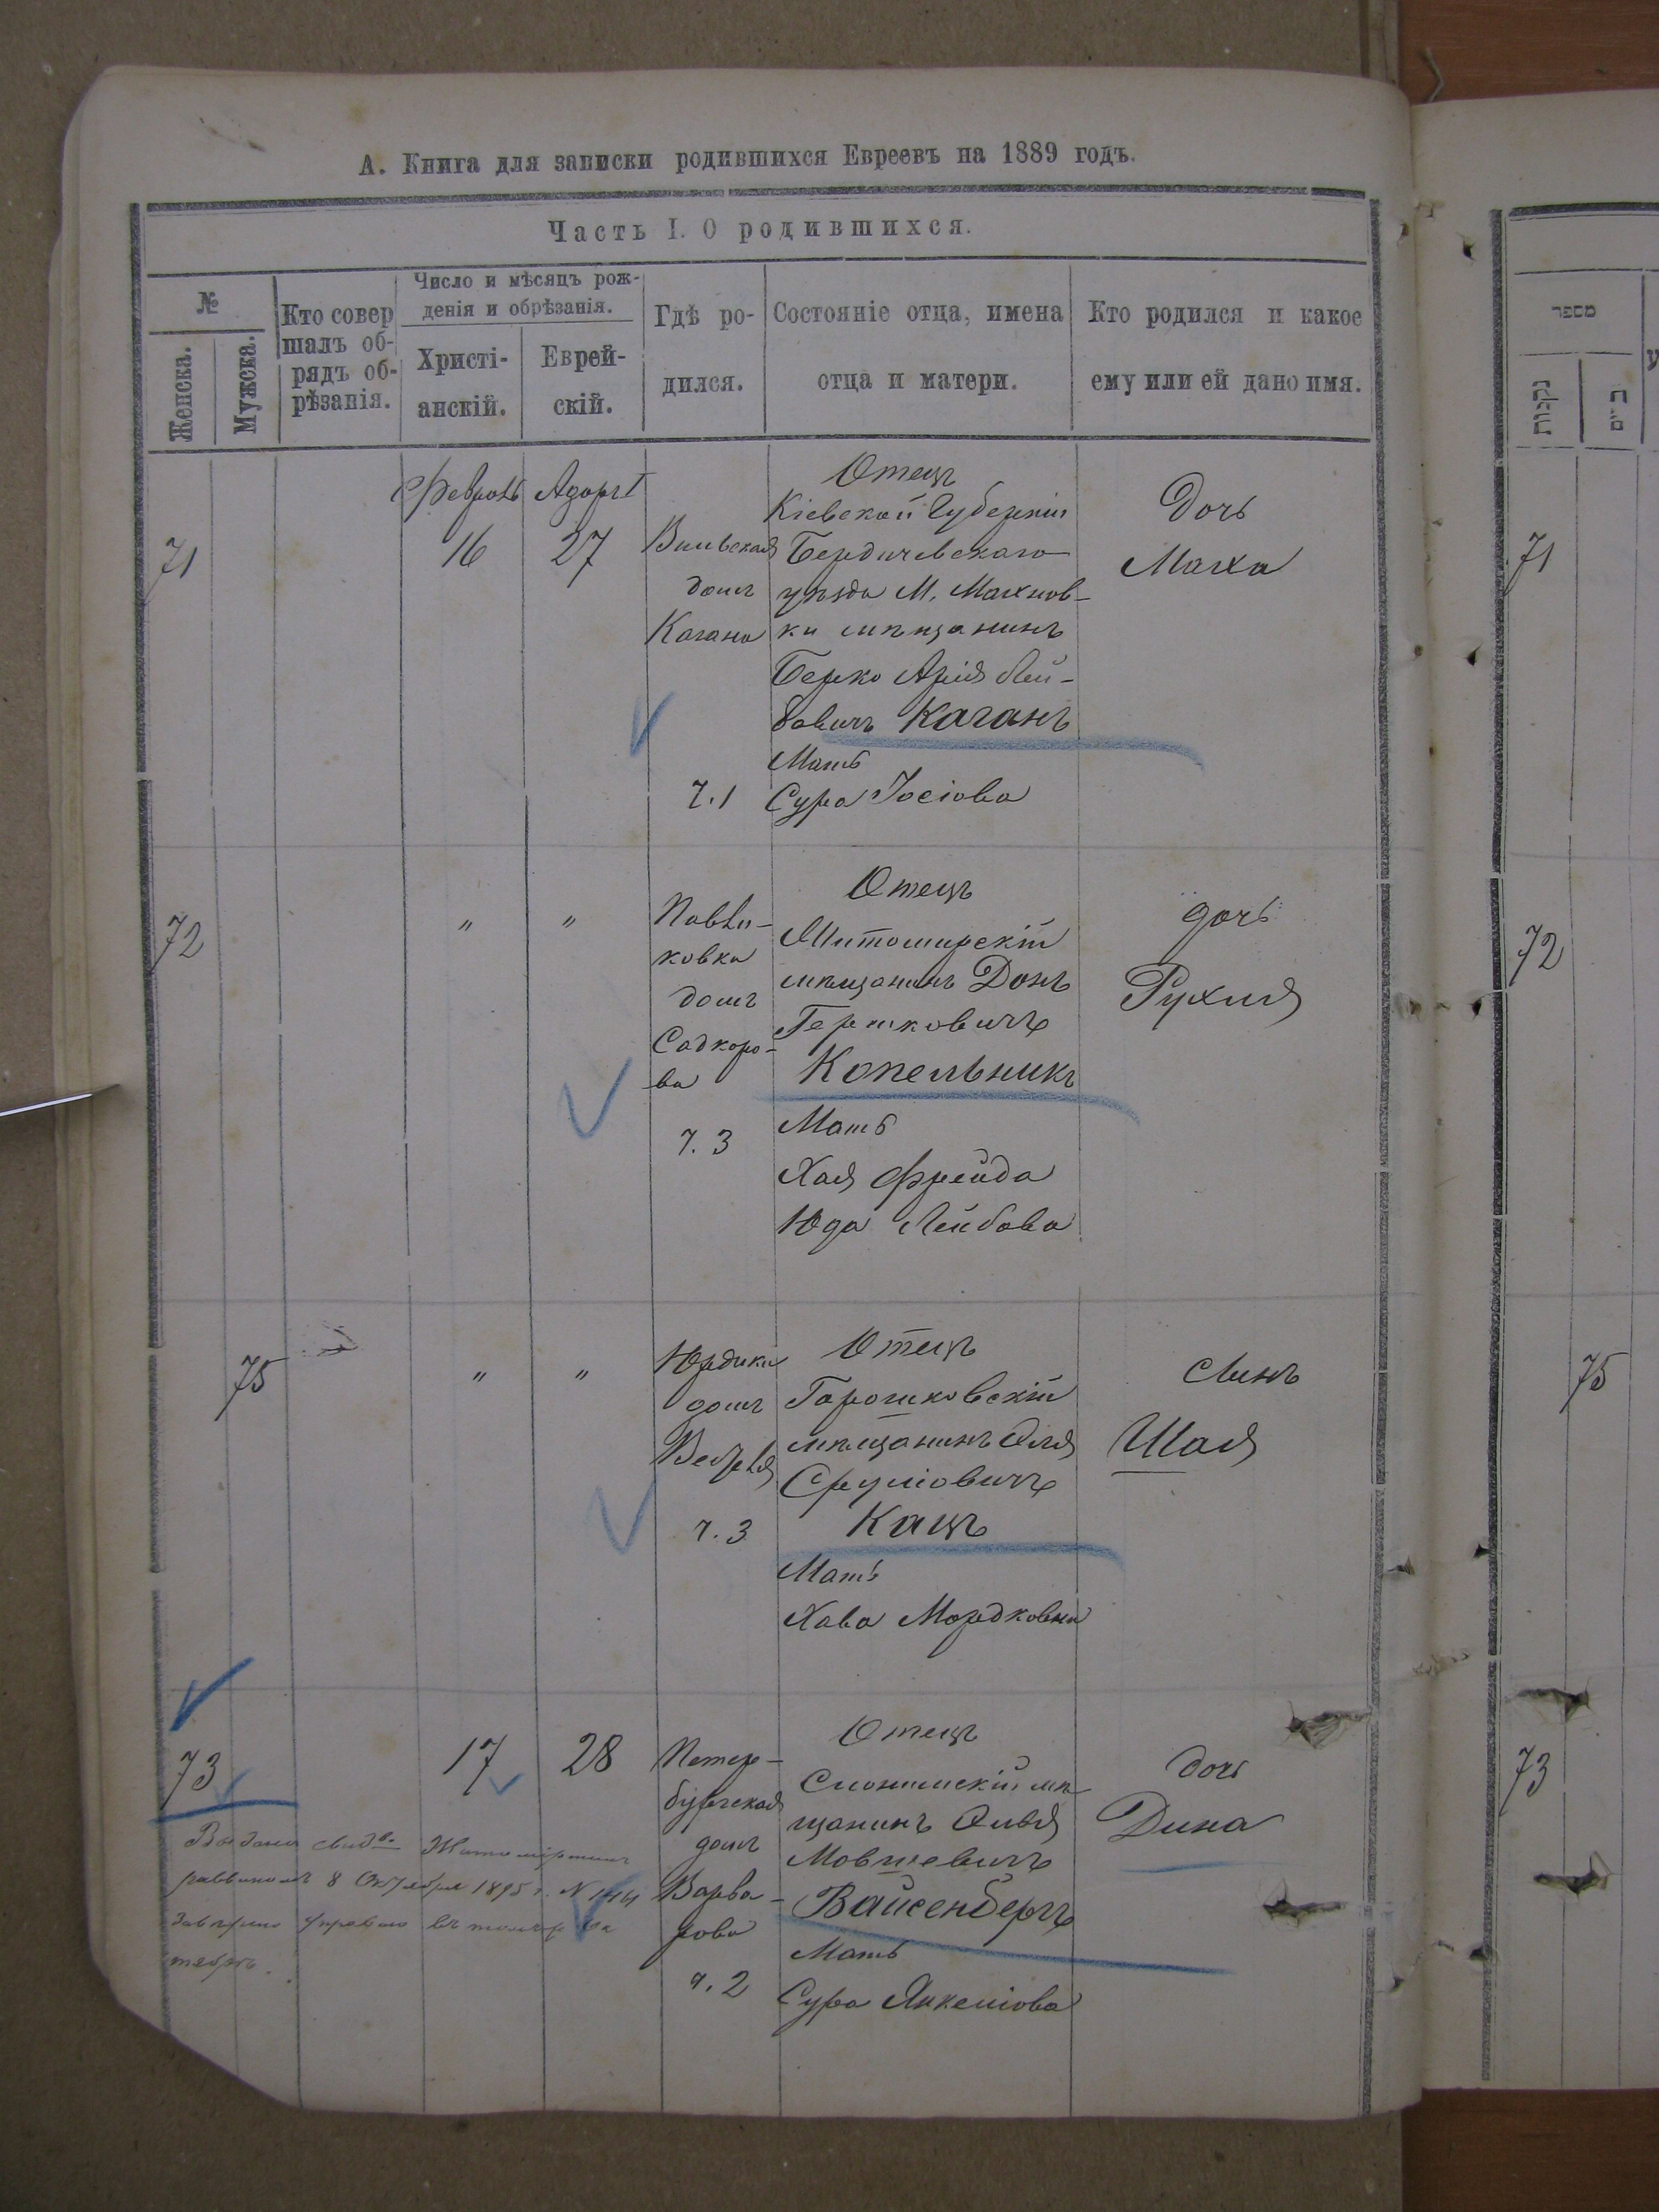 А. Книга для записки родившихся Евреевъ на 1889 годъ.
Часть I. О родившихся.
№
Женска.
Мужска.
Кто совер
шалъ об-
рядъ об-
рѣзанія.
Число и мѣсяцъ рож-
денія и обрѣзанія.
Христі-
анскій.
Еврей-
скій.
Гдѣ ро-
дился.
Состояніе отца, имена
отца и матери.
Кто родился и какое
ему или ей дано имя.
מספר
נקבות
71
Февраль
16
Адоръ I
27
Вильская
домъ
Кагана
ч. 1
Отецъ
Кіевской Губерніи
Бердичевскаго
уѣзда М. Махнов-
ки мѣщанинъ
Берко Арія Лей-
бовичъ Каганъ
Мать
Сура Іосіова
Дочь
Малка
71
72
"
"
Павли-
ковка
домъ
Садкоро-
ва
ч. 3
Отецъ
Житомирскій
мѣщанинъ Донъ
Гершковичъ
Копельникъ
Мать
Хая Фрейда
Юда Лейбова
дочь
Рухля
72
75
"
"
Юрдика
домъ
ч. 3
Отецъ
Горошковскій
мѣщанинъ Эля
Сруліовичъ
Кацъ
Мать
Хава Мордковна
Сынъ
Шая
75
73
17
28
Петер-
бургская
домъ
Варва-
рова
ч. 2
Отецъ
Слонимскій мѣ-
щанинъ Элья
Мовшевичъ
Вайсенбергъ
Мать
Сура Янкеліова
дочь
Дина
73
Выдано свид-во Житомірскимъ
раввиномъ 8 Октября 1895 г. № 144